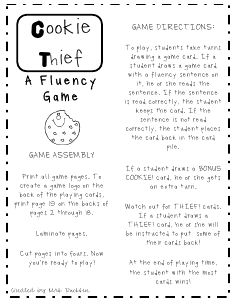 Cookie
Thief
A Fluency
Game
GAME ASSEMBLY
Print all game pages. To
create a game logo on the
back of the playing cards,
print page 19 on the backs of
pages 2 through 18.
Laminate pages.
Cut pages into fours. Now
you're ready to play!
Created by Mrs.
GAME DIRECTIONS:
To play, students take turns
drawing a game card. If a
student draws a game card
with a fluency sentence on
it, he or she reads the
sentence. If the sentence
is read correctly, the student
keeps the card. If the
sentence is not read
correctly, the student places
the card back in the card
pile.
If a student draws a BONUS
COOKIE! card, he or she gets
an extra turn.
Watch out for THIEF! cards.
If a student draws a
THIEF! card, he or she will
be instructed to put some of
their cards back!
At the end of playing time,
the student with the most
cards wins!